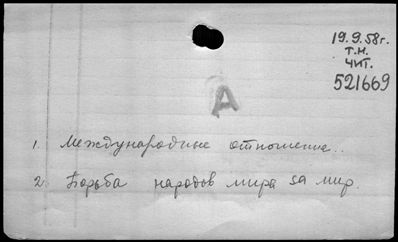 19.9.58г.
т.н.
чит.
521669
А
1. Международные отношение..
2. Борьба народов мира за мир.